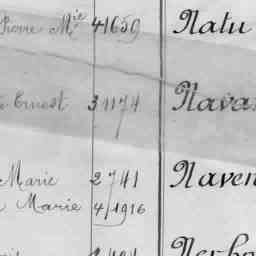 Pierre Mie 41659 Natu
Ernest 31174 Nava
Marie 2741 Naven
Marie 4/1916